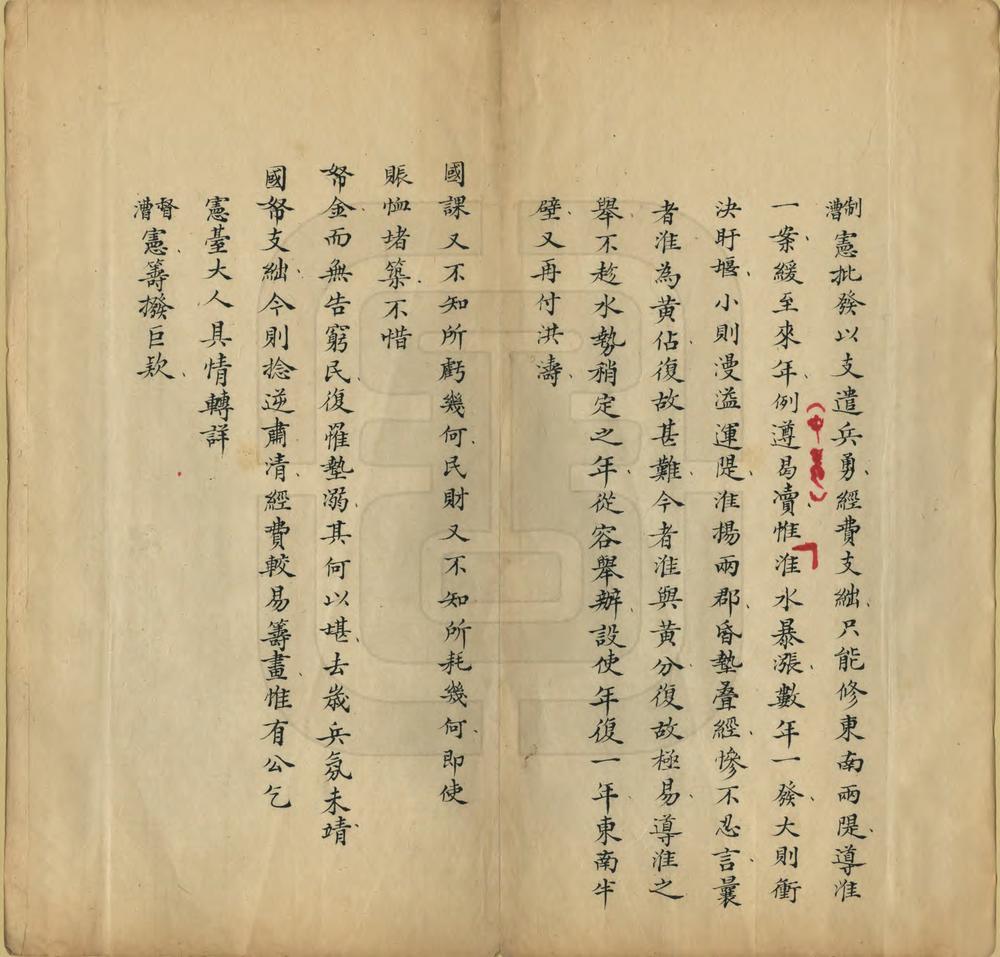 制漕憲批發以支遣兵勇經費支絀只能修東南兩隄導淮
一案緩至來年例遵曷瀆惟淮水暴漲數年一發大則衝
決盱堰小則漫溢運隄淮揚兩郡昏墊疊經慘不忍言曩
者淮為黃佔復故甚難今者淮與黃分復故極易導淮之
舉不趁水勢稍定之年從容舉辦設使年復一年東南半
壁又再付洪濤
國課又不知所虧幾何民財又不知所耗幾何即使
賑恤堵築不惜
帑金而無告窮民復罹墊溺其何以堪去歲兵氛未靖
國帑支絀今則捻逆肅清經費較易籌畫惟有公乞
憲臺大人具情轉詳
督漕憲籌撥巨款